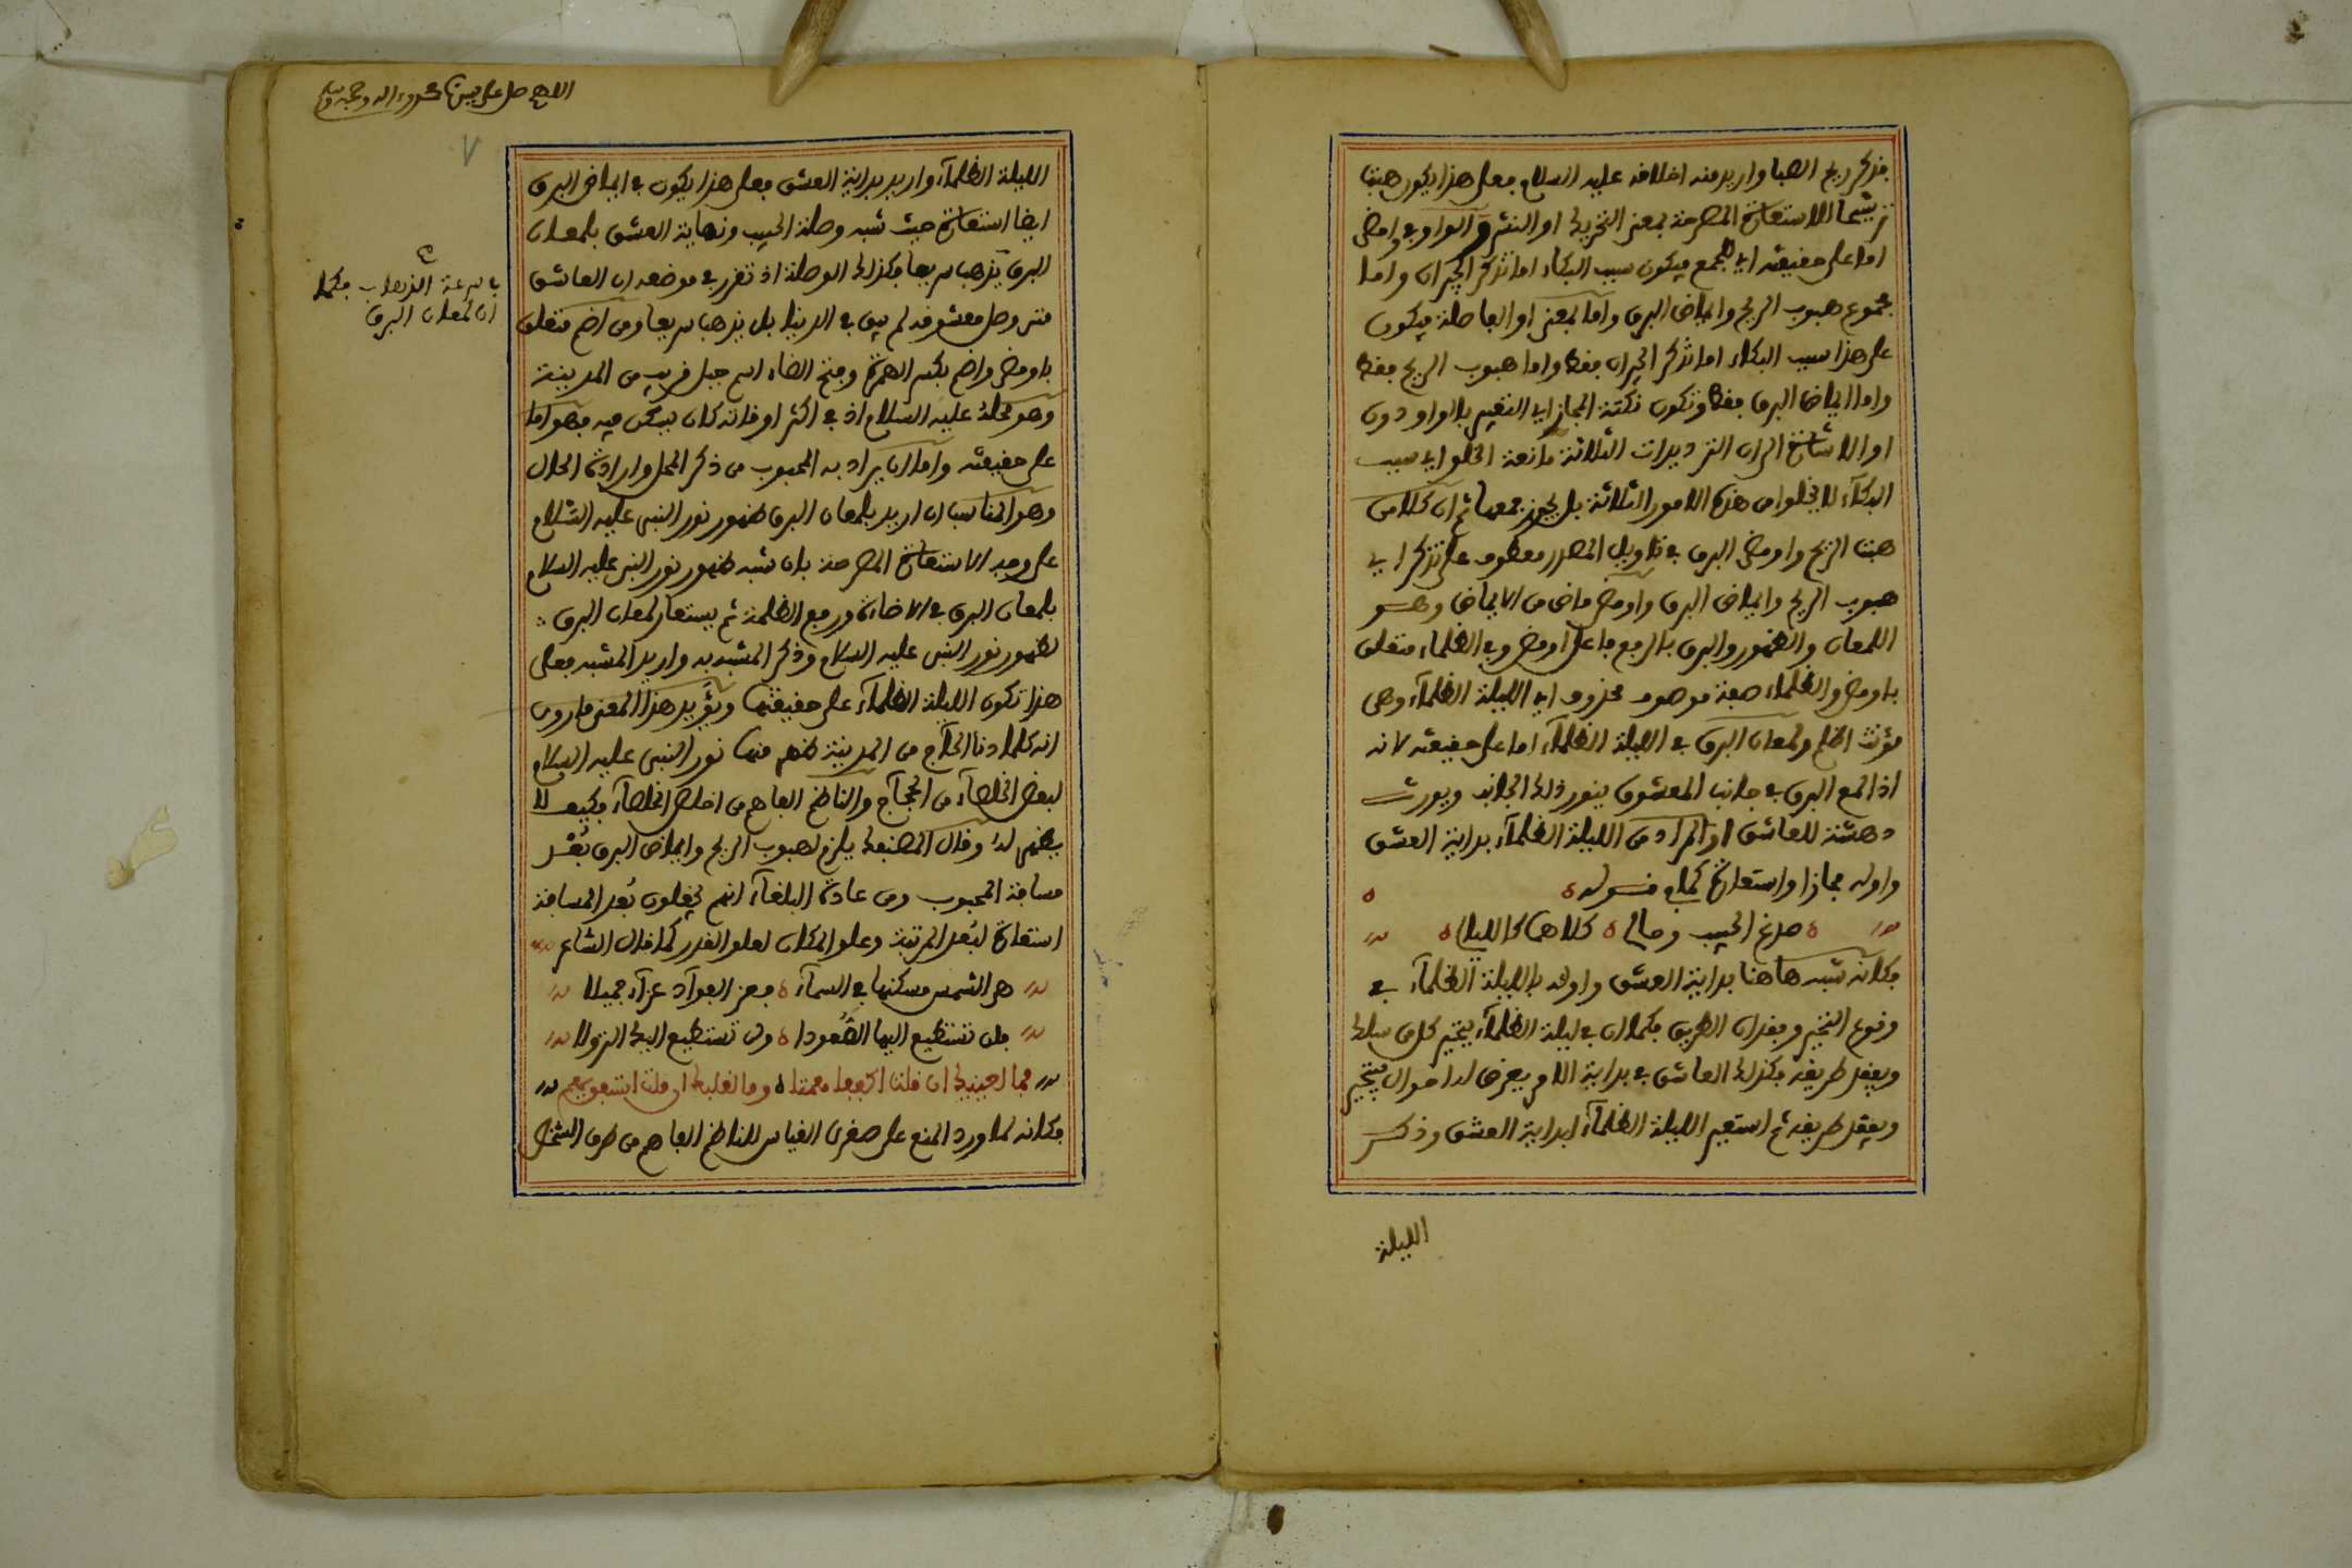 فذكر ريح الصبا واريد منه اخلافه عليه السلام فعلى هذا يكون هبت
ترشيحا للاستعارة المصرحة بمعنى التحريك او النشر والواو في واومض
اما على حقيقته اي للجمع فيكون سبب البكاء اما تذكر الجيران واما
مجموع هبوب الريح وايماض البرق واما بمعنى او الفاصلة فيكون
على هذا سبب البكاء اما تذكر الجيران فقط واما هبوب الريح فقط
واما ايماض البرق فقط وتكون نكتة المجاز اي التعبير بالواو دون
او الاشارة الى ان الترديدات الثلاثة مانعة الخلو اي سبب
البكآء لا يخلوا من هذه الامور الثلاثة بل يجوز جمعها ثم ان كلا من
هبت الريح واومض البرق في تاويل المصدر معطوف على تذكر اي
هبوب الريح وايماض البرق واومض ماض من الايماض وهو
اللمعان والظهور والبرق بالرفع فاعل اومض وفي الظلماء متعلق
باومض والظلماء صفة موصوف محذوف اي الليلة الظلمآء وهي
مؤنث اظلم ولمعان البرق في الليلة الظلمآء اما على حقيقته لانه
اذا لمع البرق في جانب المعشوق ينور ذلك الجانب ويورث
دهشة للعاشق او المراد من الليلة الظلمآء بداية العشق
واوله مجازا واستعارة كما في قوله
صدغ الحبيب وحالي كلاهما كالليالي
فكانه شبه هاهنا بداية العشق واوله بالليلة الظلمآء في
وقوع التحير وفقدان الطريق فكما ان في ليلة الظلمآء يتحير كل من سلك
ويفقد طريقه فكذلك العاشق في بداية الامر يعرض له احوال فيتحير
ويفقد طريقه ثم استعير الليلة الظلمآء لبداية العشق وذكر
الليلة
اللهم صل على سيدنا محمد واله وصحبه وسلم
٧
الليلة الظلمآء واريد بداية العشق فعلى هذا يكون في ايماض البرق
ايضا استعارة حيث شبه وصلة الحبيب ونهاية العشق بلمعان
البرق يذهب سريعا فكذلك الوصلة اذ تقرر في موضعه ان العاشق
في سرعة الذهاب فكما
ان لمعان البرق
متى وصل معشوقه لم يبق في الدنيا بل يذهب سريعا ومن اضم متعلق
باومض واضم بكسر الهمزة وفتح الضاء اسم جبل قريب من المدينة
وهو محله عليه السلام اذ في اكثر اوقاته كان يسكن فيه فهو اما
على حقيقته واما ان يراد به المحبوب من ذكر المحل وارادة الحال
وهو المناسب ان اريد بلمعان البرق ظهور نور النبي عليه السلام
على وجه الاستعارة المصرحة بان شبه ظهور نور النبي عليه السلام
بلمعان البرق في الاضاءة ورفع الظلمة ثم يستعار لمعان البرق
لظهور نور النبي عليه السلام وذكر المشبه به واريد المشبه فعلى
هذا تكون الليلة الظلمآء على حقيقتها ويؤيد هذا المعنى ما روي
انه كلما دنا الحآج من المدينة ظهر منها نور النبي عليه السلام
لبعض الخلصآء من الحجآج والناظم الفاهم من اخلص الخلصآء فكيف لا
يظهر له وقال المصنفك يلزم لهبوب الريح وايماض البرق بُعْد
مسافة المحبوب ومن عادة البلغآء انهم يجعلون بُعد المسافة
استعارة لبُعد المرتبة وعلو المكان لعلو القدر كما قال الشاعر
هي الشمس مسكنها في السمآء فعز الفوآد عزآء جميلا
فلن تستطيع اليها الصُّعودا ولن تستطيع اليك النزولا
فما لعينيك ان قلت اكففا همتا وما لقلبك ان قلت استفق يهم
فكانه لما ورد المنع على صغرى القياس للناظم الفاهم من طرف الشخص